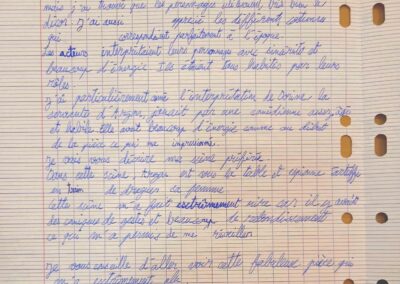 mais j'ai trouvé que les personnages utilisaient très bien le
décor. J'ai aussi apprécié les différents costumes
qui correspondaient parfaitement à l'époque.
Les acteurs interprétaient leurs personnages avec sincérité et
beaucoup d'énergie. Ils étaient tous habités par leurs
rôles.
J'ai particulièrement aimé l'interprétation de Dorine la
servante d'Orgon, jouait par une comédienne aussi
et habile. Elle avait beaucoup d'énergie comme au début
de la pièce ce qui m'a impressionné.
Je vais vous décrire ma scène préférée
Dans cette scène, Orgon est sous la table et épionne tartuffe
en train de draguer sa femme
Cette scène m'a fait extrêmement rire car il y avait
des comiques de gestes et beaucoup de rebondissement
ce qui m'a permis de me réveiller.
Je vous conseille d'aller voir cette fabuleuse pièce qui
m'a extrêmement plu